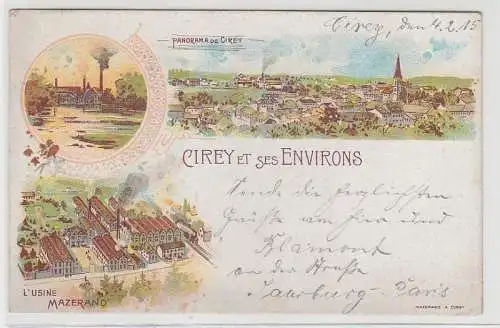 Cirey, den 4.2.15
PANORAMA DE CIREY
CIREY ET SES ENVIRONS
Sende die herzlichsten
Grüße aus hier und
Blamont
an der Straße
Saarburg-Paris
L'USINE
MAZERAND
MAZERAND A CIREY